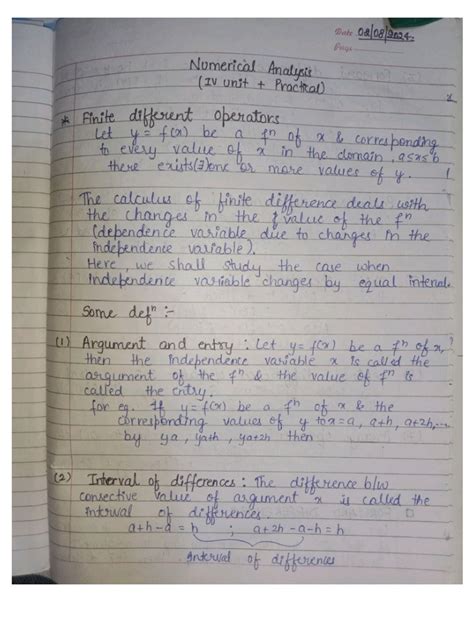 Date 02/08/2024.
Page
Numerical Analysis
(IV unit + Practical)
* Finite different operators
Let y = f(x) be a fⁿ of x & corresponding
to every value of x in the domain, a≤x≤b
there exists(∃)one or more values of y.
The calculus of finite difference deals with
the changes in the value of the fⁿ
(dependence variable due to changes in the
independence variable).
Here, we shall study the case when
independence variable changes by equal interval.
Some defⁿ :-
(1) Argument and entry : Let y = f(x) be a fⁿ of x,
then the independence variable x is called the
argument of the fⁿ & the value of fⁿ is
called the entry.
for eg. If y = f(x) be a fⁿ of x & the
corresponding values of y to x = a, a+h, a+2h,...
by ya, ya+h, ya+2h then
(2) Interval of differences : The difference b/w
consective value of argument x is called the
interval of differences.
a+h-a = h ; a+2h-a-h = h
Interval of differences